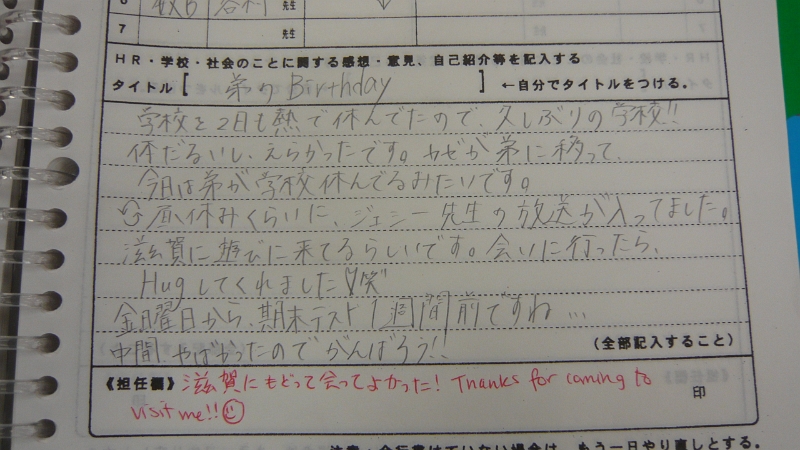 6 数B 谷村 先生
7 先生
HR・学校・社会のことに関する感想・意見、自己紹介等を記入する
タイトル [ 弟の Birthday ] ←自分でタイトルをつける。
学校を2日も熱で休んでたので、久しぶりの学校!!
体だるいし、えらかったです。カゼが弟に移って、
今日は弟が学校休んでるみたいです。
昼休みくらいに、ジェシー先生の放送が入ってました。
滋賀に遊びに来てるらしいです。会いに行ったら、
Hugしてくれました♡笑
金曜日から、期末テスト1週間前ですね…
中間、やばかったのでがんばろう!!
(全部記入すること)
《担任欄》 滋賀にもどって会ってよかった! Thanks for coming to
visit me!! ☺ 印